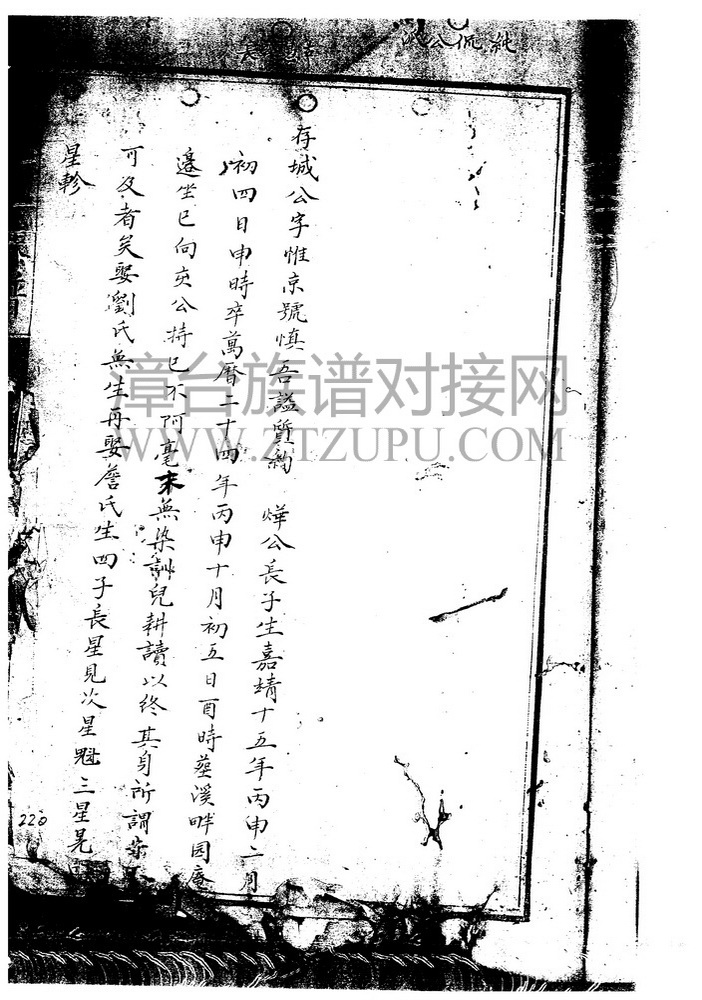 純侃公派
存城公字惟京號慎吾謚質約 燁公長子生嘉靖十五年丙申二月
初四日申時卒萬曆二十四年丙申十月初五日酉時塟溪畔园庵
邉坐巳向亥公持己不阿毫末無染訓兒耕讀以終其身所謂
可及者矣娶劉氏無生再娶詹氏生四子長星見次星魁三星晃
星軫
220
漳台族谱对接网
WWW.ZTZUPU.COM